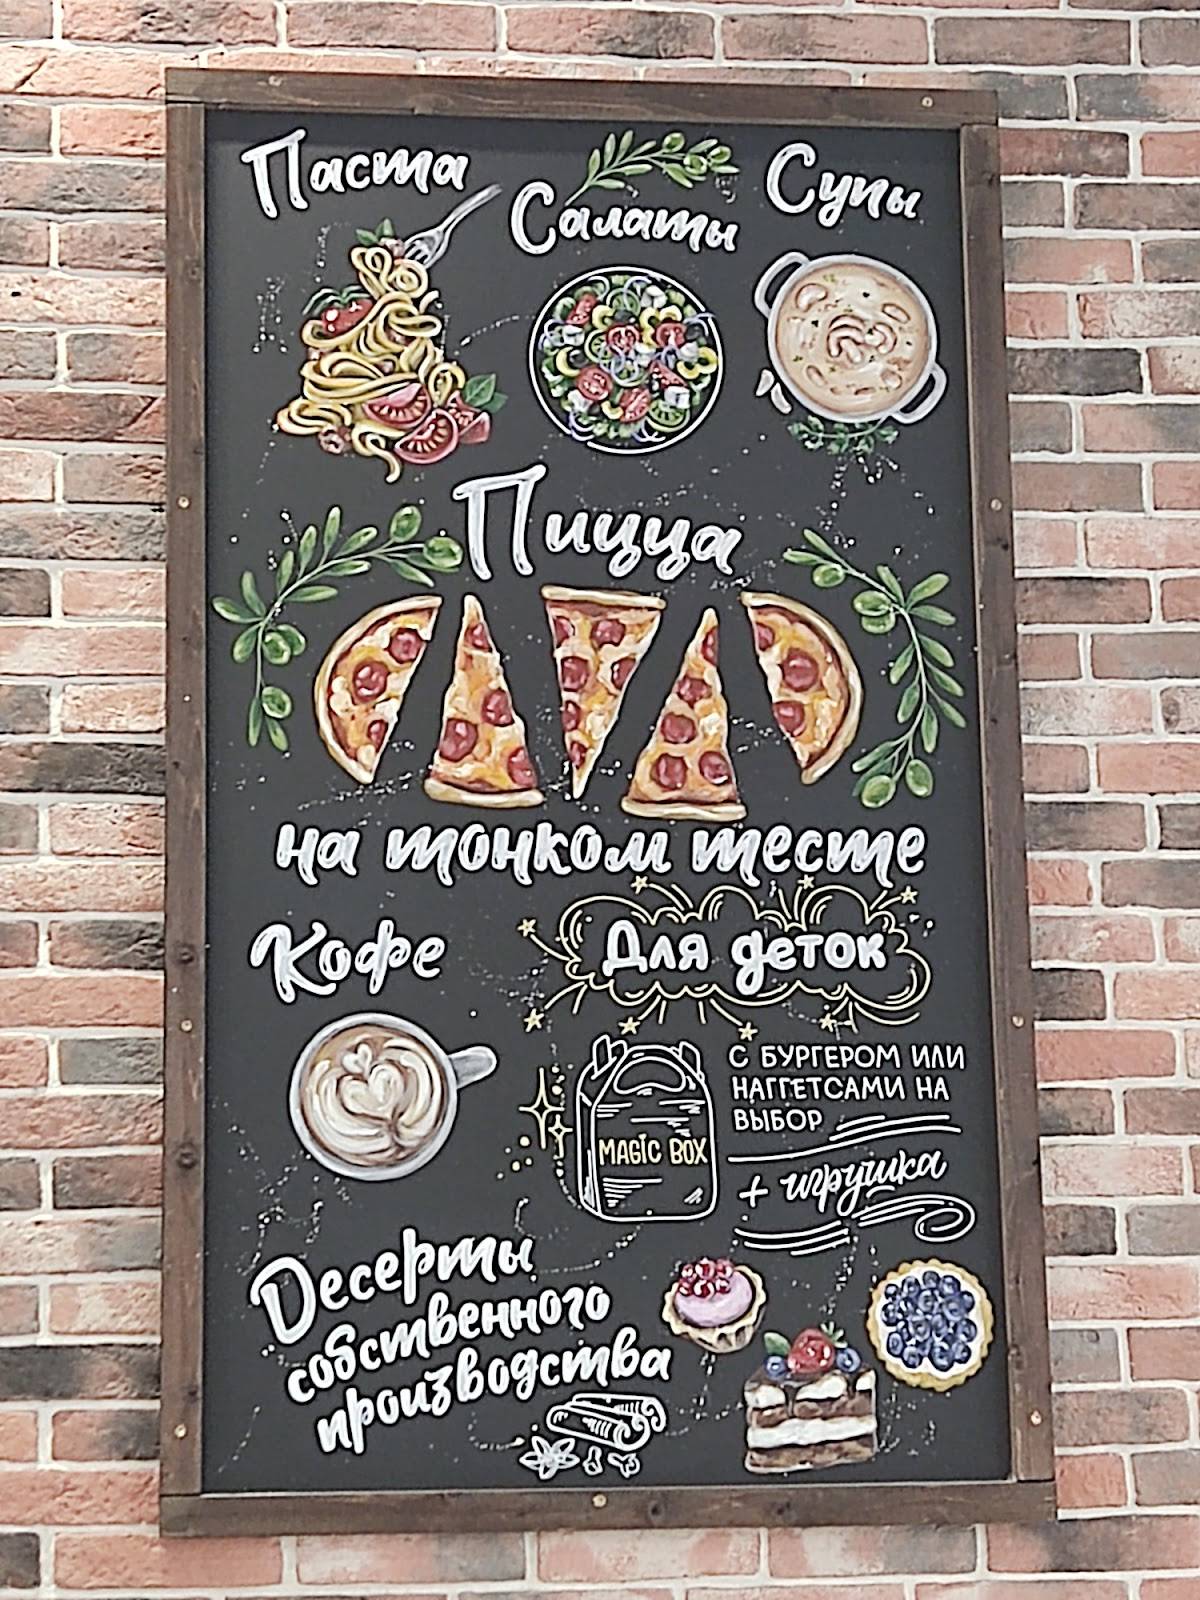 Паста
Салаты
Супы
Пицца
на тонком тесте
Кофе
Для деток
MAGIC BOX
С БУРГЕРОМ ИЛИ
НАГГЕТСАМИ НА
ВЫБОР
+ игрушка
Десерты
собственного
производства